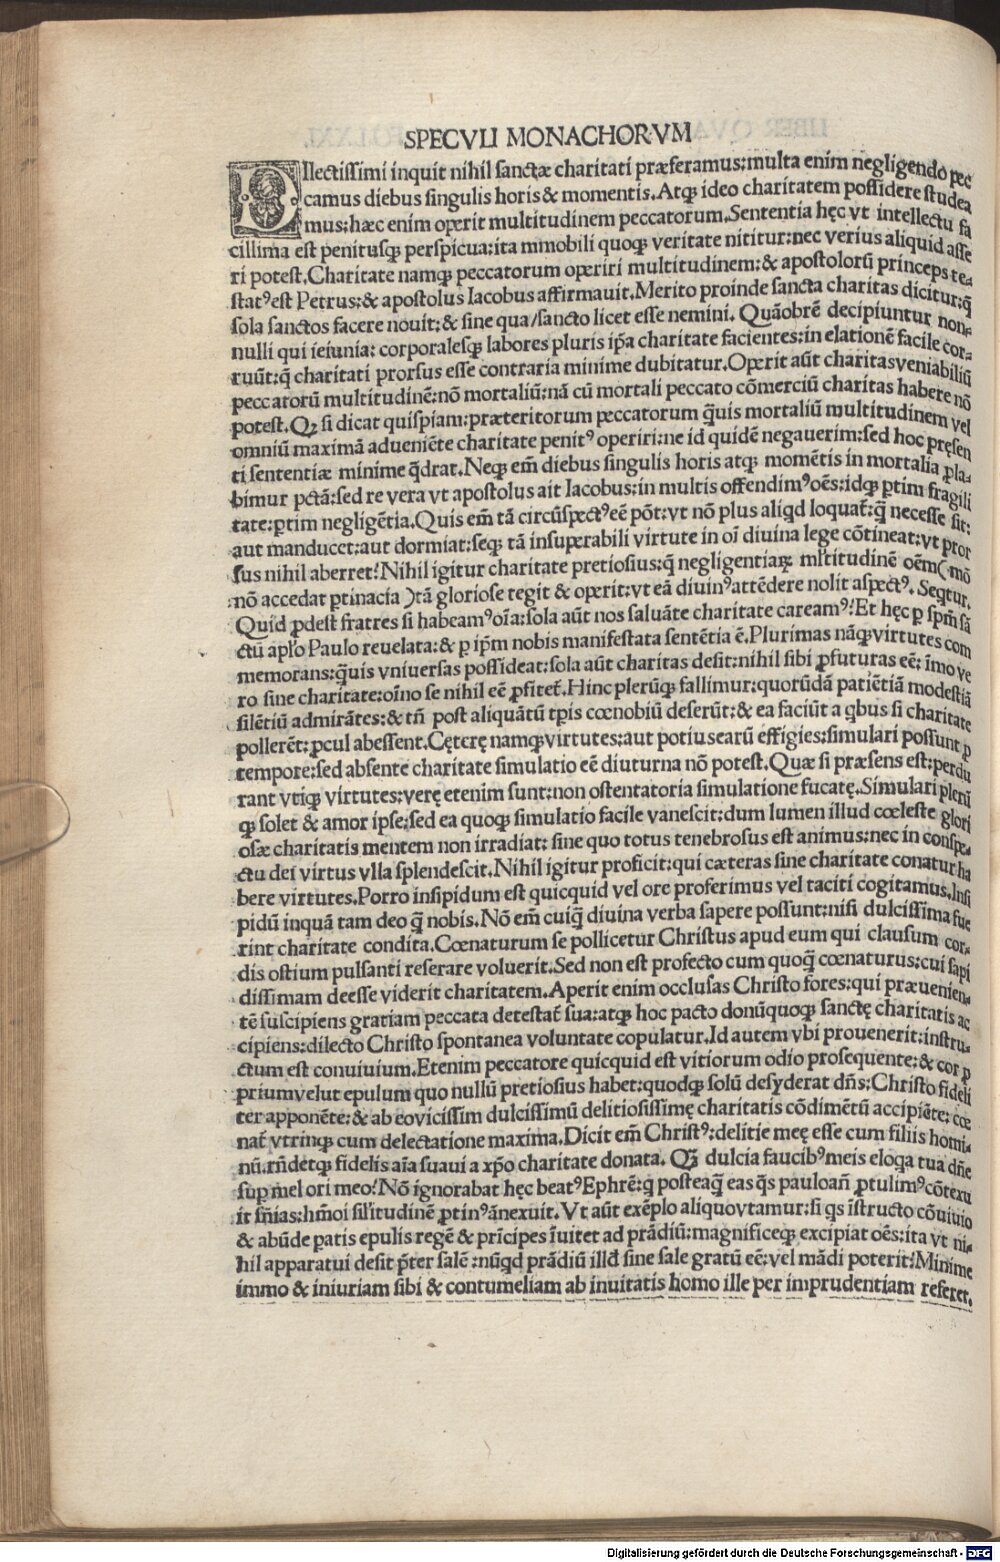 SPECVLI MONACHORVM
DIlectissimi inquit nihil sanctæ charitati præferamus:multa enim negligendo pec
camus diebus singulis horis & momentis.Atqꝫ ideo charitatem possidere studea
mus:hæc enim operit multitudinem peccatorum.Sententia hęc vt intellectu fa
cillima est penitusqꝫ perspicua:ita mmobili quoqꝫ veritate nititur:nec verius aliquid asse
ri potest.Charitate namqꝫ peccatorum operiri multitudinem:& apostolorū princeps te-
statꝰest Petrus:& apostolus Iacobus affirmauit.Merito proinde sancta charitas dicitur:q̄
sola sanctos facere nouit:& sine qua/sancto licet esse nemini. Quāobrē decipiuntur non-
nulli qui ieiunia: corporalesqꝫ labores pluris ip̄a charitate facientes:in elationē facile cor-
ruūt:q̄ charitati prorsus esse contraria minime dubitatur.Operit aūt charitasveniabiliū
peccatorū multitudinē:nō mortaliū:nā cū mortali peccato cōmerciū charitas habere nō
potest.Qꝫ si dicat quispiam:præteritorum peccatorum q̄uis mortaliū multitudinem vel
omniū maximā adueniēte charitate penitꝰ operiri:ne id quidē negauerim:sed hoc pręsen
ti sententiæ minime q̄drat.Neqꝫ em̄ diebus singulis horis atqꝫ momētis in mortalia ꝓla-
bimur pctā:sed re vera vt apostolus ait Iacobus:in multis offendimꝰoēs:idqꝫ ꝑtim fragili
tate:ꝑtim negligētia.Quis em̄ tā circūspectꝰeē pōt:vt nō plus aliqd loquat̄:q̄ necesse sit:
aut manducet:aut dormiat:seqꝫ tā insuperabili virtute in oī diuina lege cōtineat:vt pror
sus nihil aberret?Nihil igitur charitate pretiosius:q̄ negligentiaꝝ mltitudinē oēm(mō
nō accedat ꝑtinacia )tā gloriose tegit & operit:vt eā diuinꝰattēdere nolit aspectꝰ. Seqtur.
Quid ꝓdest fratres si habeamꝰoīa:sola aūt nos saluāte charitate careamꝰ?Et hęc ꝑ spm̄ sā
ctū aplo Paulo reuelata:& ꝑ ip̄m nobis manifestata sentētia ē.Plurimas nāqꝫvirtutes com
memorans:q̄uis vniuersas possideat:sola aūt charitas desit:nihil sibi ꝓfuturas eē: īmo ve
ro sine charitate:oīno se nihil eē ꝓfitet̄.Hinc plerūqꝫ fallimur:quorūdā patiētiā modestiā
silētiū admirātes:& tn̄ post aliquātū tp̄is cœnobiū deserūt:& ea faciūt a qbus si charitate
pollerēt:ꝓcul abessent.Cęterę namqꝫvirtutes:aut potiusearū effigies:simulari possunt ꝑ
tempore:sed absente charitate simulatio eē diuturna nō potest.Quæ si præsens est:perdu
rant vtiqꝫ virtutes:verę etenim sunt:non ostentatoria simulatione fucatę.Simulari plerū
qꝫ solet & amor ipse:sed ea quoqꝫ simulatio facile vanescit:dum lumen illud cœleste glori
osæ charitatis mentem non irradiat: sine quo totus tenebrosus est animus:nec in conspe-
ctu dei virtus vlla splendescit.Nihil igitur proficit:qui cæteras sine charitate conatur ha
bere virtutes.Porro insipidum est quicquid vel ore proferimus vel taciti cogitamus.Insi
pidū inquā tam deo q̄ nobis.Nō em̄ cuiq̄ diuina verba sapere possunt:nisi dulcissima fue
rint charitate condita.Cœnaturum se pollicetur Christus apud eum qui clausum cor-
dis ostium pulsanti reserare voluerit.Sed non est profecto cum quoq̄ cœnaturus:cui sapi
dissimam deesse viderit charitatem.Aperit enim occlusas Christo fores:qui præuenien-
tē suscipiens gratiam peccata detestat̄ sua:atqꝫ hoc pacto donūquoqꝫ sanctę charitatis ac
cipiens:dilecto Christo spontanea voluntate copulatur.Id autem vbi prouenerit:instru-
ctum est conuiuium.Etenim peccatore quicquid est vitiorum odio prosequente:& cor ꝓ
priumvelut epulum quo nullū pretiosius habet:quodqꝫ solū desyderat dn̄s:Christo fideli
ter apponēte:& ab eovicissim dulcissimū delitiosissimę charitatis cōdimētū accipiēte:cœ
nat̄ vtrinqꝫ cum delectatione maxima.Dicit em̄ Christꝰ:delitie meę esse cum filiis homi-
nū.rn̄detqꝫ fidelis aīa suaui a xp̄o charitate donata. Qꝫ dulcia faucibꝰmeis eloqa tua dn̄e
suꝑ mel ori meo?Nō ignorabat hęc beatꝰEphrē:q posteaq̄ eas q̄s pauloan̄ ꝓtulimꝰcōtexu
it sn̄ias:hm̄oi sil̄itudinē ꝓtinꝰānexuit.Vt aūt exēplo aliquovtamur:si qs īstructo cōuiuio
& abūde patis epulis regē & prīcipes īuitet ad prādiū:magnificeqꝫ excipiat oēs:ita vt ni-
hil apparatui desit p̄ter salē:nūqd prādiū illd̄ sine sale gratū eē:vel mādi poterit?Minime
immo & iniuriam sibi & contumeliam ab inuitatis homo ille per imprudentiam referet.
Digitalisierung gefördert durch die Deutsche Forschungsgemeinschaft - DFG